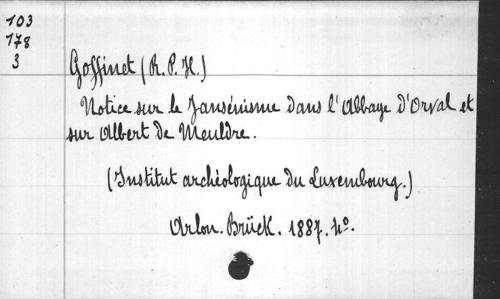 103
178
3
Goffinet (R.P.H.)
Notice sur le Jansénisme dans l'Abbaye d'Orval et
sur Albert de Meuldre.
(Institut archéologique du Luxembourg.)
Arlon. Brück. 1887. 4o.